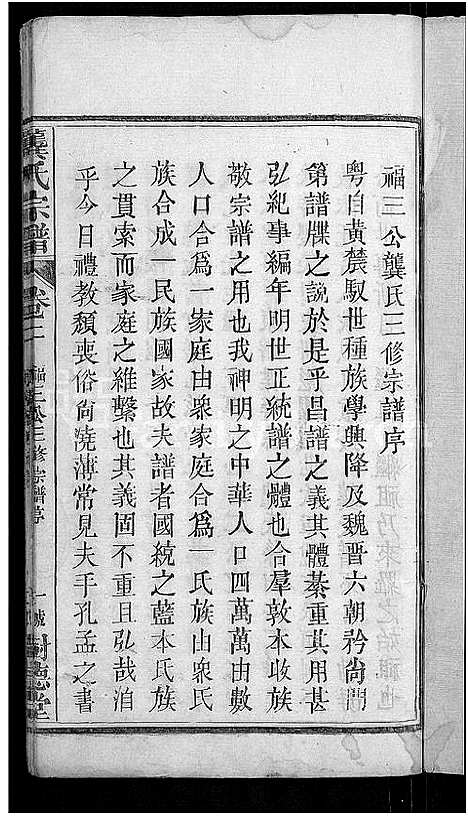 福三公龔氏三修宗譜序
粵自黃農馭世種族學興降及魏晉六朝衿尙門
第譜牒之說於是乎昌譜之義其體綦重其用甚
弘紀事編年明世正統譜之體也合羣敦本收族
敬宗譜之用也我神明之中華人口四萬萬由數
人口合爲一家庭由衆家庭合爲一氏族由衆氏
族合成一民族國家故夫譜者國統之藍本氏族
之貫索而家庭之維繫也其義固不重且弘哉洎
乎今日禮教頹喪俗尙澆薄常見夫手孔孟之書
龔氏宗譜
卷三
福三公三修宗譜序
一
樹德堂